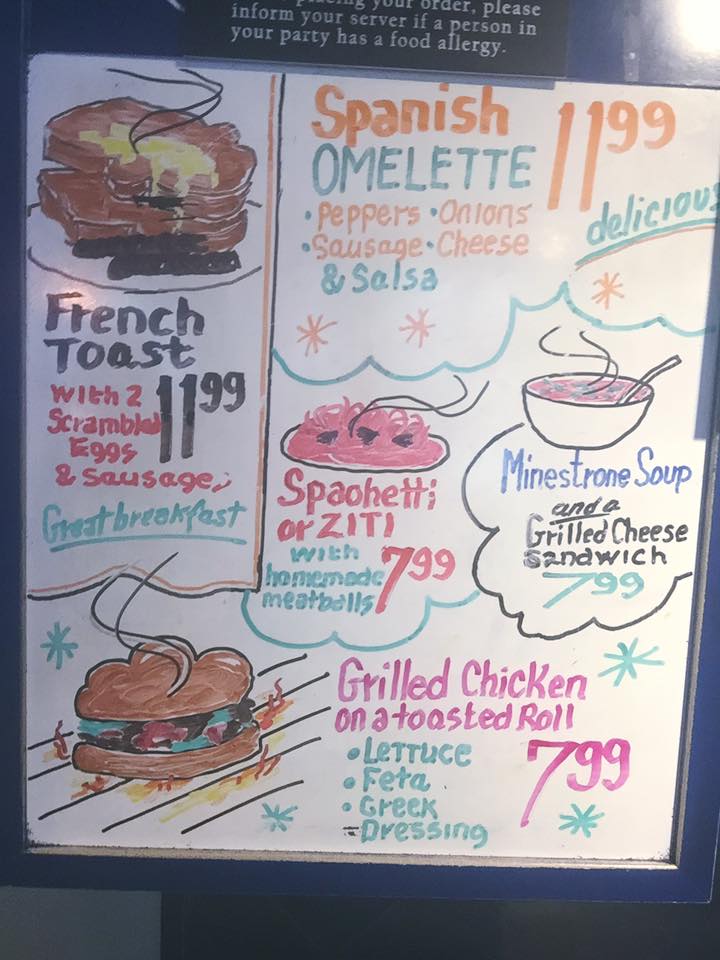 placing your order, please
inform your server if a person in
your party has a food allergy.
Spanish
OMELETTE
11.99
• Peppers • Onions
• Sausage • Cheese
& Salsa
delicious
French
Toast
with 2
Scrambled
Eggs
& Sausage
11.99
Great breakfast
Spaghetti
or ZITI
with
homemade
meatballs
7.99
Minestrone Soup
and a
Grilled Cheese
sandwich
7.99
Grilled Chicken
on a toasted Roll
• Lettuce
• Feta
• Greek
-Dressing
7.99